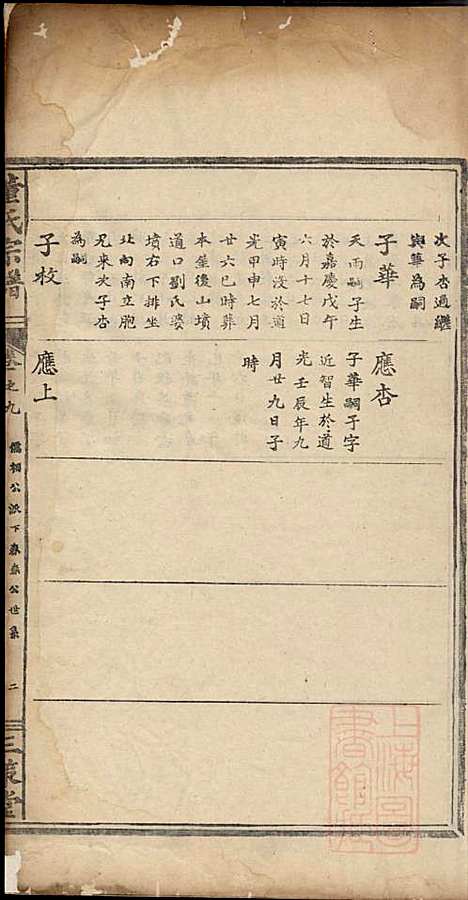 次子杏過繼
與華為嗣
子華
天雨嗣子生
於嘉慶戊午
六月十七日
寅時沒於道
光甲申七月
廿六巳時葬
本屋後山墳
道口劉氏婆
墳右下排坐
北向南立胞
兄來次子杏
為嗣
子牧
應杏
子華嗣子字
近智生於道
光壬辰年九
月廿九日子
時
應上
董氏宗譜
卷之九
儒相公派下森泰公世系
二
三策堂
上海圖書館藏